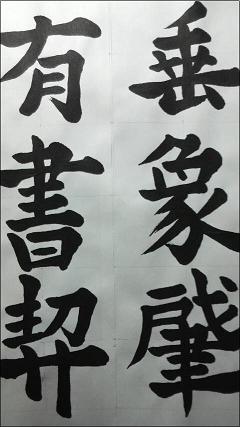 垂象肇
有書契